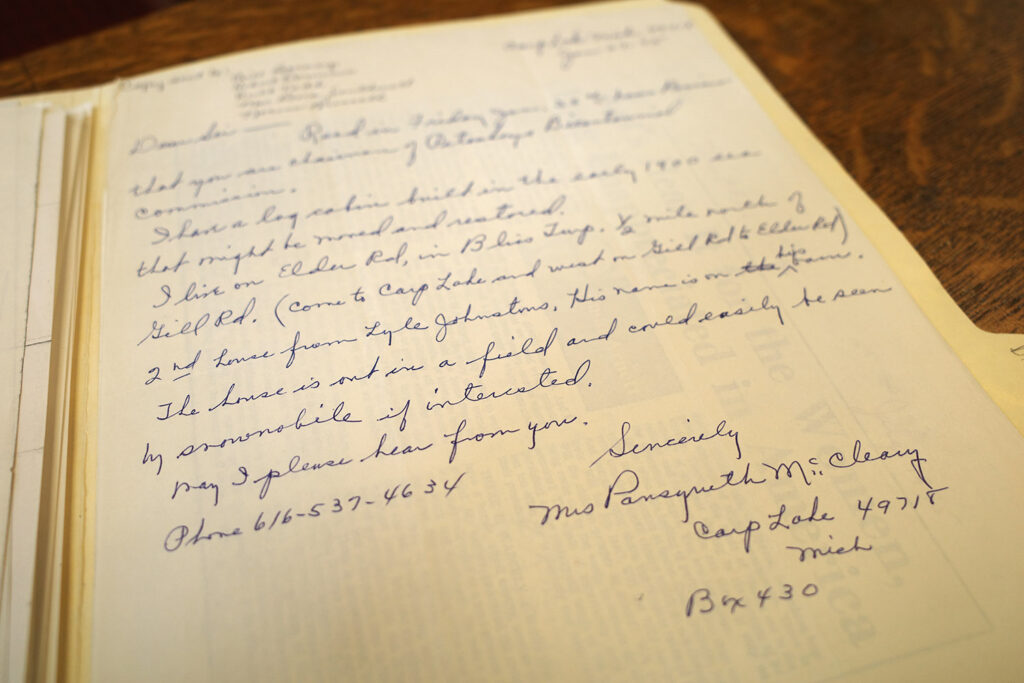 Copy sent to
Carp Lake Mich
Dear Sir — Read in Friday Jan. News Review
that you are chairman of Petoskeys Bicentennial
Commission.
I have a log cabin built in the early 1900 era
that might be moved and restored.
I live on Elder Rd, in Bliss Twp. 1/2 mile north of
Gill Rd. (come to Carp Lake and west on Gill Rd to Elder Rd)
2nd house from Lyle Johnstons, His name is on the his barn.
The house is out in a field and could easily be seen
by snowmobile if interested.
May I please hear from you.
Sincerely
Mrs Pansyruth McCleary
Phone 616-537-4634
Carp Lake 49718
Mich
Box 430